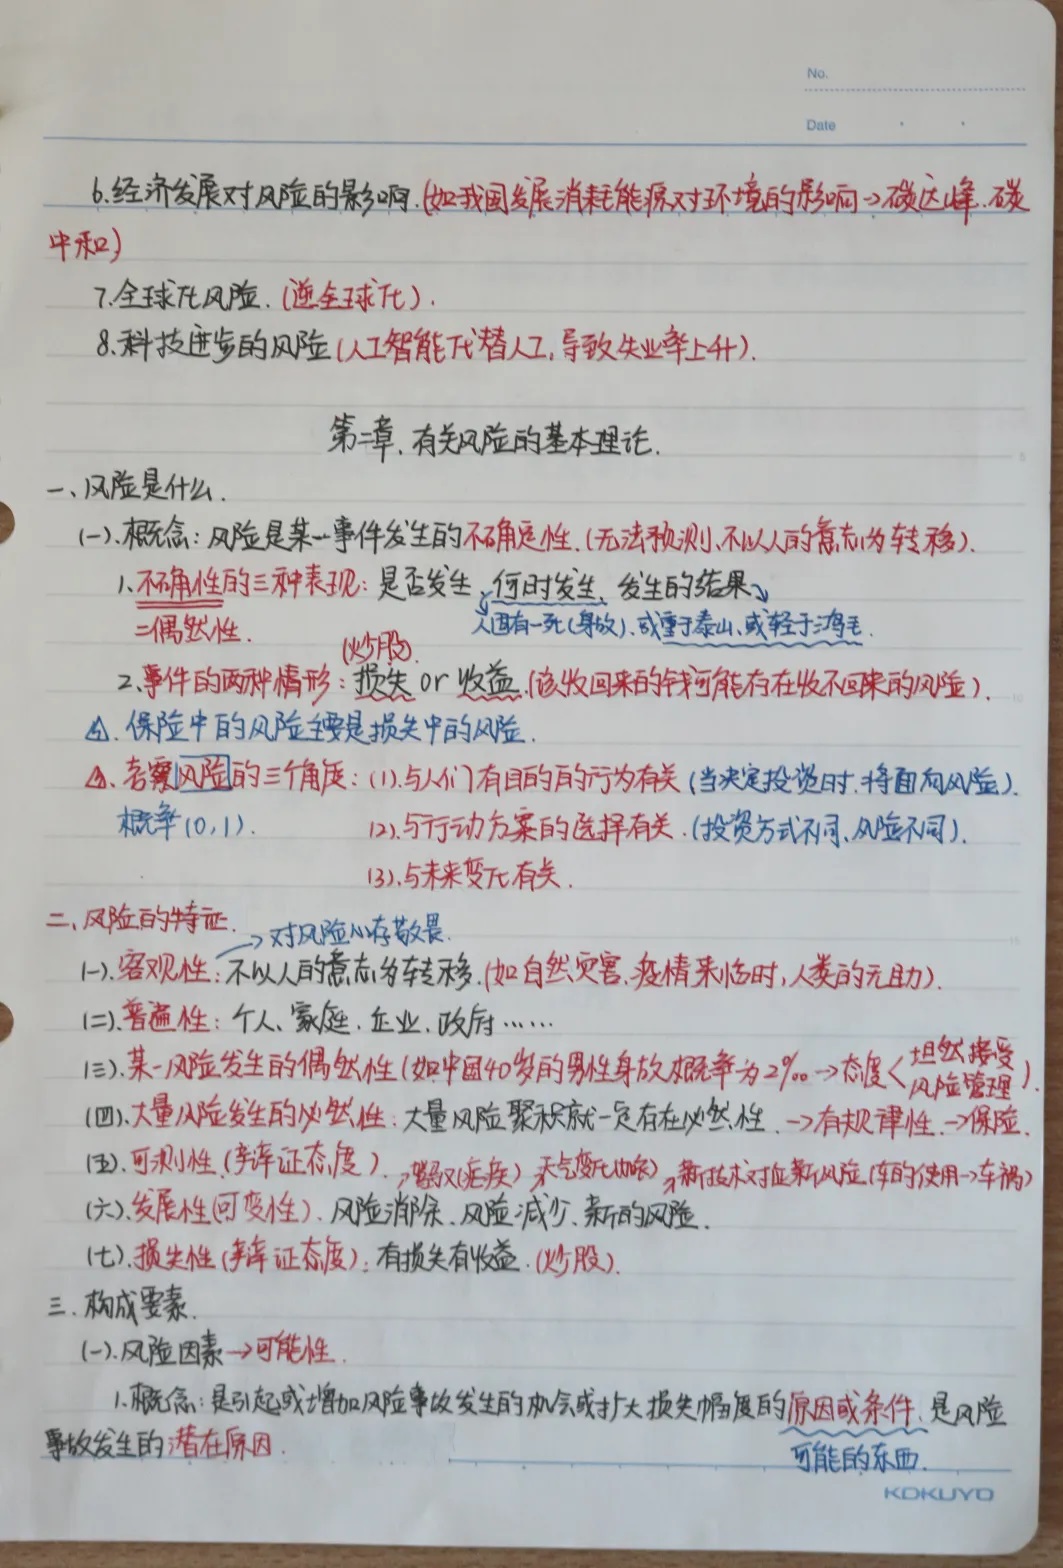 No.
Date
6.经济发展对风险的影响.(如我国发展消耗能源对环境的影响→碳达峰.碳
中和)
7.全球化风险.(逆全球化).
8.科技进步的风险(人工智能代替人工,导致失业率上升).
第二章.有关风险的基本理论.
一、风险是什么.
(一).概念:风险是某一事件发生的不确定性.(无法预测、不以人的意志为转移).
1.不确性的三种表现:是否发生、何时发生、发生的结果
=偶然性.
人固有一死(身故)、或重于泰山、或轻于鸿毛.
(炒股).
2.事件的两种情形:损失or收益.(该收回来的钱可能存在收不回来的风险).
△.保险中的风险主要是损失中的风险.
△.考察风险的三个角度:(1).与人们有目的的行为有关(当决定投资时.将面向风险).
概率(0,1).
(2).与行动方案的选择有关.(投资方式不同、风险不同).
(3).与未来变化有关.
二、风险的特征.
→对风险心存敬畏.
(一).客观性:不以人的意志为转移.(如自然灾害.疫情来临时,人类的无助).
(二).普遍性:个人、家庭、企业、政府……
(三).某一风险发生的偶然性(如中国40岁的男性身故概率为2‰→态度<坦然接受 风险管理).
(四).大量风险发生的必然性:大量风险聚积就一定存在必然性.→有规律性.→保险.
(五).可测性(辩证态度).
(疾疫) 新技术对应新风险(车的使用→车祸)
(六).发展性(可变性)、风险消除、风险减少、新的风险.
(七).损失性(辩证态度):有损失有收益.(炒股).
三.构成要素.
(一).风险因素→可能性.
1.概念:是引起或增加风险事故发生的机会或扩大损失幅度的原因或条件.是风险
事故发生的潜在原因.
可能的东西.
KOKUYO